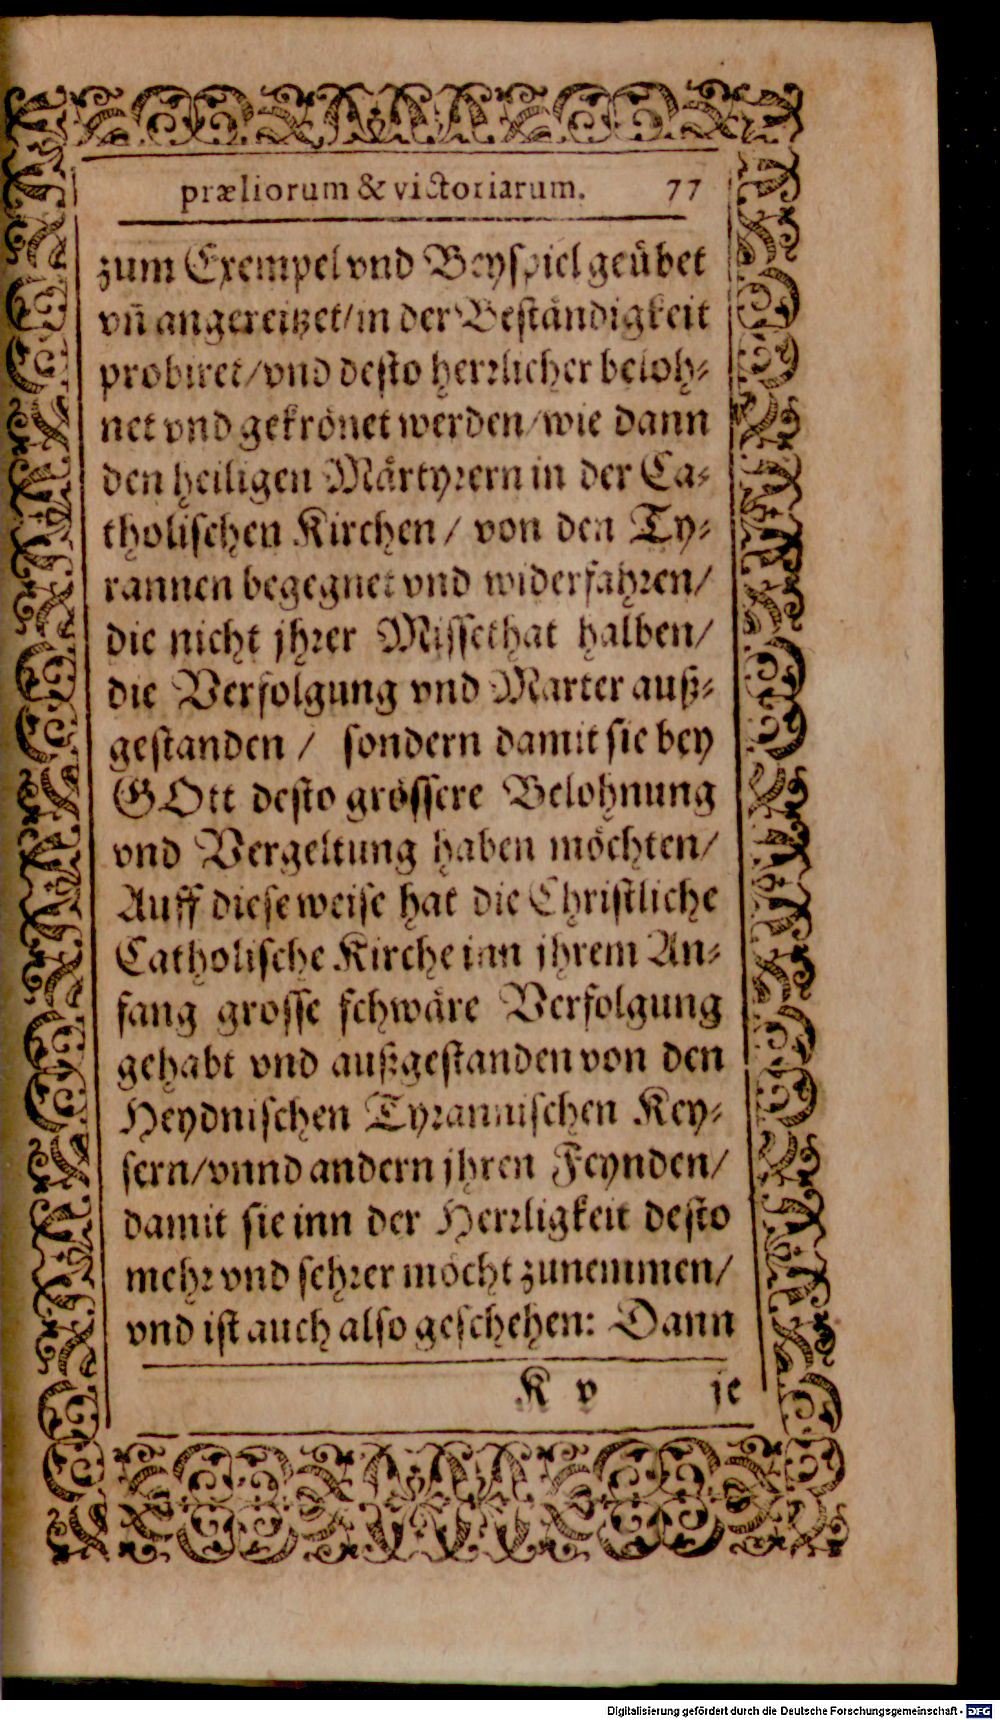 præliorum & victoriarum. 77
zum Exempel vnd Beyspiel geübet
vñ angereitzet/in der Beständigkeit
probiret/vnd desto herrlicher beloh⸗
net vnd gekrönet werden/wie dann
den heiligen Märtyrern in der Ca⸗
tholischen Kirchen/ von den Ty⸗
rannen begegnet vnd widerfahren/
die nicht jhrer Missethat halben/
die Verfolgung vnd Marter auß⸗
gestanden / sondern damit sie bey
GOtt desto grössere Belohnung
vnd Vergeltung haben möchten/
Auff diese weise hat die Christliche
Catholische Kirche inn jhrem An⸗
fang grosse schwäre Verfolgung
gehabt vnd außgestanden von den
Heydnischen Tyrannischen Key⸗
sern/vnnd andern jhren Feynden/
damit sie inn der Herrligkeit desto
mehr vnd sehrer möcht zunemmen/
vnd ist auch also geschehen: Dann
K v je
Digitalisierung gefördert durch die Deutsche Forschungsgemeinschaft - DFG